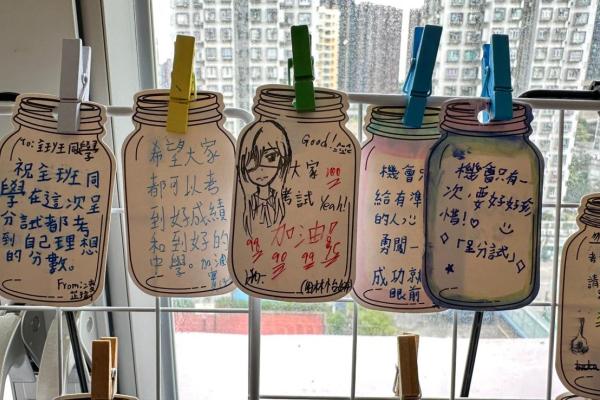 To: 全班同學
祝全班同
學在這次呈
分試都考
到自己理想
的分數。
From:
希望大家
都可以考
到好成績
和到好的
中學。加油
Good!
大家 100
考試 Yeah!
加油!
99 90 99 95
機會
給有準
的人
勇闖一
成功就
眼前
機會只有一
次,要好好珍
惜!
「呈分試」